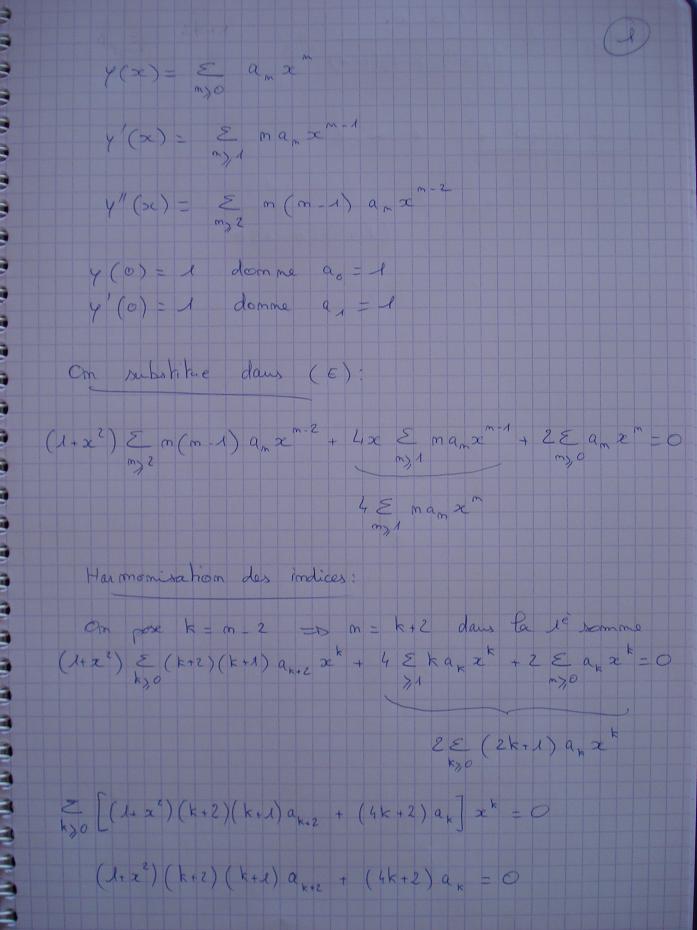 1
y(x) = Σ_{n≥0} a_n x^n
y'(x) = Σ_{n≥1} n a_n x^{n-1}
y''(x) = Σ_{n≥2} n(n-1) a_n x^{n-2}
y(0) = 1 donne a_0 = 1
y'(0) = 1 donne a_1 = 1
On substitue dans (E) :
(1+x²) Σ_{n≥2} n(n-1) a_n x^{n-2} + 4x Σ_{n≥1} n a_n x^{n-1} + 2 Σ_{n≥0} a_n x^n = 0
4 Σ_{n≥1} n a_n x^n
Harmonisation des indices :
On pose k = n-2 => n = k+2 dans la 1e somme
(1+x²) Σ_{k≥0} (k+2)(k+1) a_{k+2} x^k + 4 Σ_{≥1} k a_k x^k + 2 Σ_{n≥0} a_k x^k = 0
2 Σ_{k≥0} (2k+1) a_k x^k
Σ_{k≥0} [(1+x²)(k+2)(k+1) a_{k+2} + (4k+2) a_k] x^k = 0
(1+x²)(k+2)(k+1) a_{k+2} + (4k+2) a_k = 0